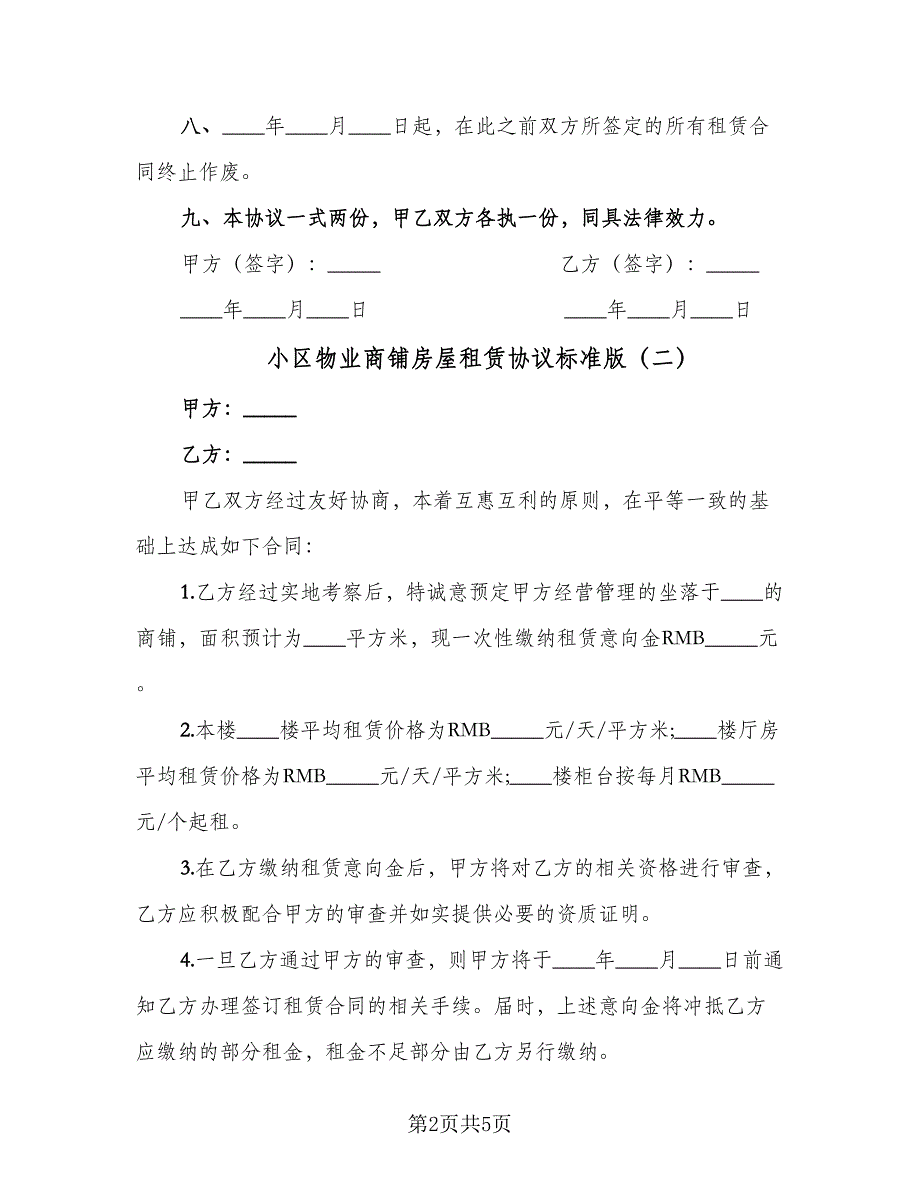 八、____年____月____日起，在此之前双方所签定的所有租赁合
同终止作废。
九、本协议一式两份，甲乙双方各执一份，同具法律效力。
甲方（签字）：_____ 乙方（签字）：_____
____年____月____日 ____年____月____日
小区物业商铺房屋租赁协议标准版（二）
甲方：_____
乙方：_____
甲乙双方经过友好协商，本着互惠互利的原则，在平等一致的基
础上达成如下合同：
1.乙方经过实地考察后，特诚意预定甲方经营管理的坐落于____的
商铺，面积预计为____平方米，现一次性缴纳租赁意向金RMB_____元
。
2.本楼____楼平均租赁价格为RMB_____元/天/平方米;____楼厅房
平均租赁价格为RMB_____元/天/平方米;____楼柜台按每月RMB_____
元/个起租。
3.在乙方缴纳租赁意向金后，甲方将对乙方的相关资格进行审查，
乙方应积极配合甲方的审查并如实提供必要的资质证明。
4.一旦乙方通过甲方的审查，则甲方将于____年____月____日前通
知乙方办理签订租赁合同的相关手续。届时，上述意向金将冲抵乙方
应缴纳的部分租金，租金不足部分由乙方另行缴纳。
第2页共5页